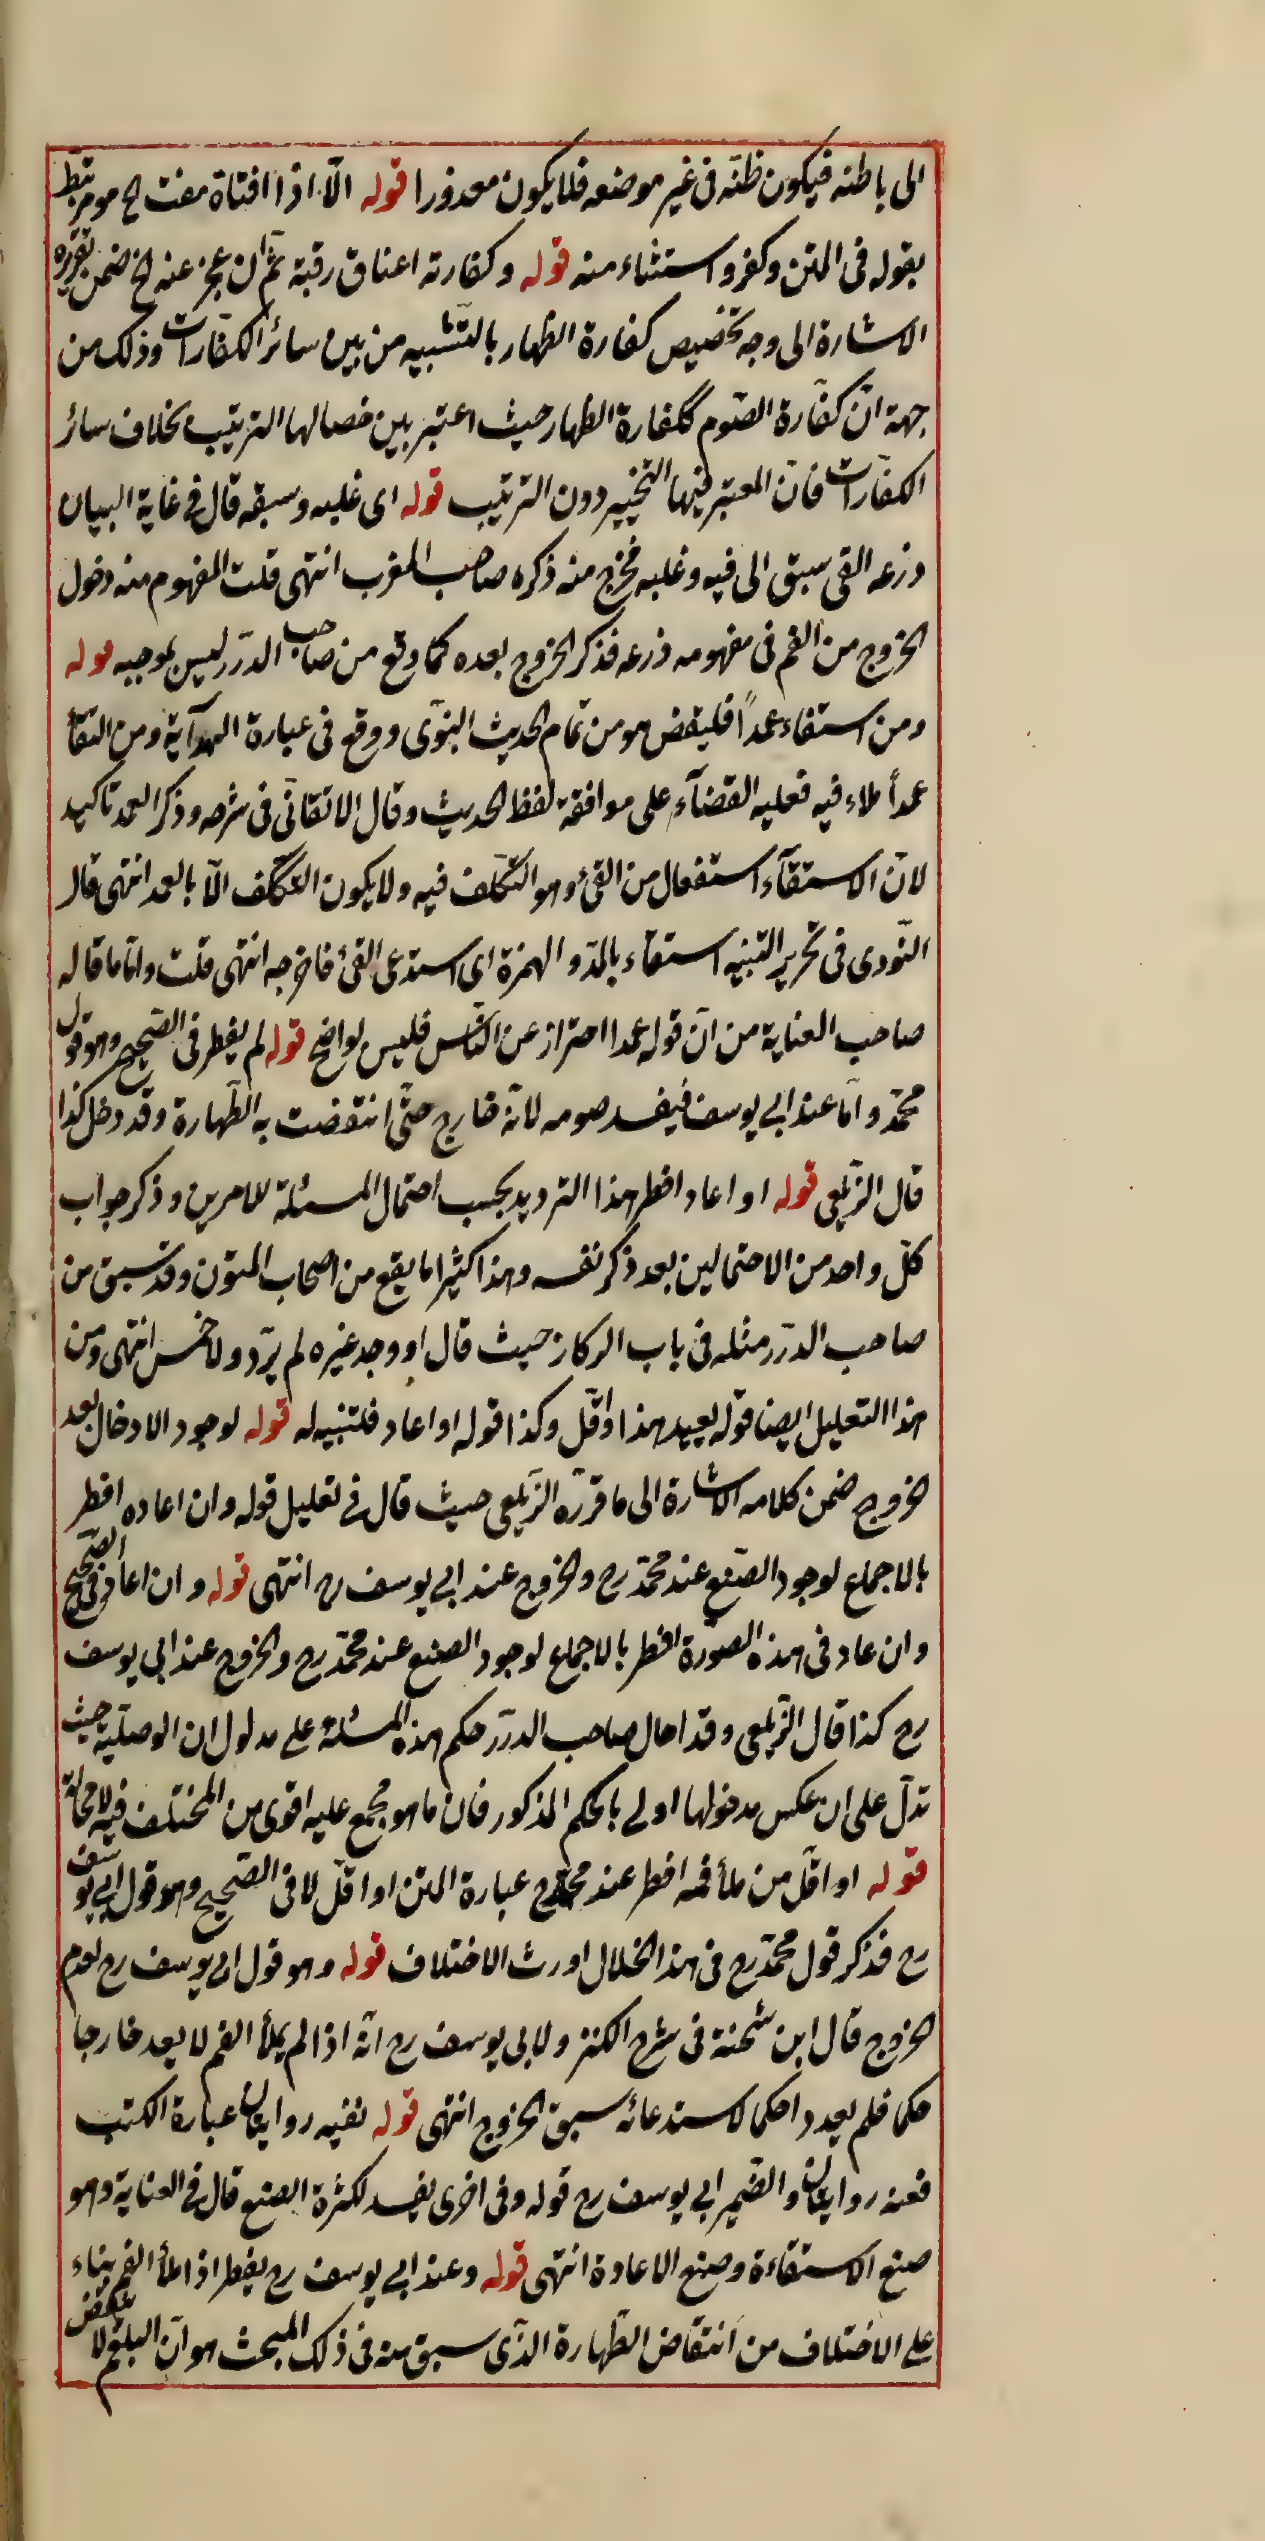 الى باطنه فيكون ظنّه فى غير موضعه فلا يكون معذورا قوله الّا اذا افتاه مفت الخ هو مرتبط
بقوله فى المتن وكفر واستثناء منه قوله وكفارته اعتاق رقبة ثم ان عجز عنه الخ ضمن تقريره
الاشارة الى وجه تخصيص كفارة الظهار بالتّشبيه من بين سائر الكفّارات وذلك من
جهة انّ كفّارة الصّوم ككفارة الظهار حيث اعتبر بين خصالها الترتيب بخلاف سائر
الكفّارات فانّ المعتبر فيها التخيير دون الترتيب قوله اى غلبه وسبقه قال فى غاية البيان
ذرعه القئ سبق الى فيه وغلبه فخرج منه ذكره صاحب المغرب انتهى قلت المفهوم منه دخول
الخروج من الفم فى مفهومه ذرعه فذكر الخروج بعده كما وقع من صاحب الدّرر ليس بموجبه قوله
ومن استقاء عمداً فليقض هو من تمام الحديث النبوّى ووقع فى عبارة الهدآية ومن التقأ
عمدأ ملاء فيه فعليه القضآء على موافقة لفظ الحديث وقال الاتقانّى فى شرحه وذكر العمد تاكيد
لانّ الاستقآء استفعال من القئ وهو التكّلف فيه ولا يكون التكّلف الّا بالعمد انتهى قال
النّووى فى تحرير التنبيه استقآء بالمدّ والهمزة اى استدعى القئ فاخرجه انتهى قلت وامّا ما قاله
صاحب العناية من انّ قوله عمدا احتراز عن النّاس فليس بواضح قوله لم يفطر فى الصّحيح وهو قول
محمّد وامّا عند ابى يوسف فيفسد صومه لانّه خارج حتّى انتقضت به الطّهارة وقد دخل كذا
قال الزّيلعى قوله او اعاد افطر هذا الترديد بحسب احتمال المسئلة للامرين وذكر جواب
كلّ واحد من الاحتمالين بعد ذكر نفسه وهذا كثيرا ما يقع من اصحاب المتون وقد سبق من
صاحب الدّرر مثله فى باب الركاز حيث قال او وجد غيره لم يردّ ولا خمس انتهى ومن
هذا التعليل ايضا قوله بعيد هذا او اقّل وكذا قوله او اعاد فلتنبه له قوله لوجود الادخال بعد
الخروج ضمن كلامه الاشارة الى ما قررّه الزّيلعى حيث قال فى تعليل قوله وان اعاده افطر
بالاجماع لوجود الصّنع عند محمّد رح والخروج عند ابى يوسف رح انتهى قوله وان اعاد فى الصّحيح
وان عاد فى هذه الصّورة افطر بالاجماع لوجود الصنع عند محمّد رح والخروج عند ابى يوسف
رح كذا قال الزّيلعى وقد احال صاحب الدّرر حكم هذه المسئلة على مدلول ان الوصليّة حيث
تدلّ على ان عكس مدخولها اولى بالحكم المذكور فان ما هو مجمع عليه اقوى من المختلف فيه لا محالة
قوله او اقّل من ملأ فمه افطر عند محمّد رح عبارة المتن او اقّل لا فى الصّحيح وهو قول ابى يوسف
رح فذكر قول محمّد رح فى هذا الخلال اورث الاختلاف قوله وهو قول ابى يوسف رح لعدم
الخروج قال ابن شحنة فى شرح الكنز ولابى يوسف رح انّه اذا لم يملأ الفم لا يعد خارجا
حكما فلم يعد داحكما لاستدعائه سبق الخروج انتهى قوله نفيه روايتان عبارة الكتب
فعنه روايتان والضّمير ابى يوسف رح قوله وفى اخرى يفسد لكثرة الصنع قال فى العناية وهو
صنع الاستقاءة وصنع الاعادة انتهى قوله وعند ابى يوسف رح يفطر اذا ملأ الفم بناء
على الاختلاف من انتقاض الطّهارة الذّى سبق منه فى ذلك المبحث هو انّ البلغم لا ينقض